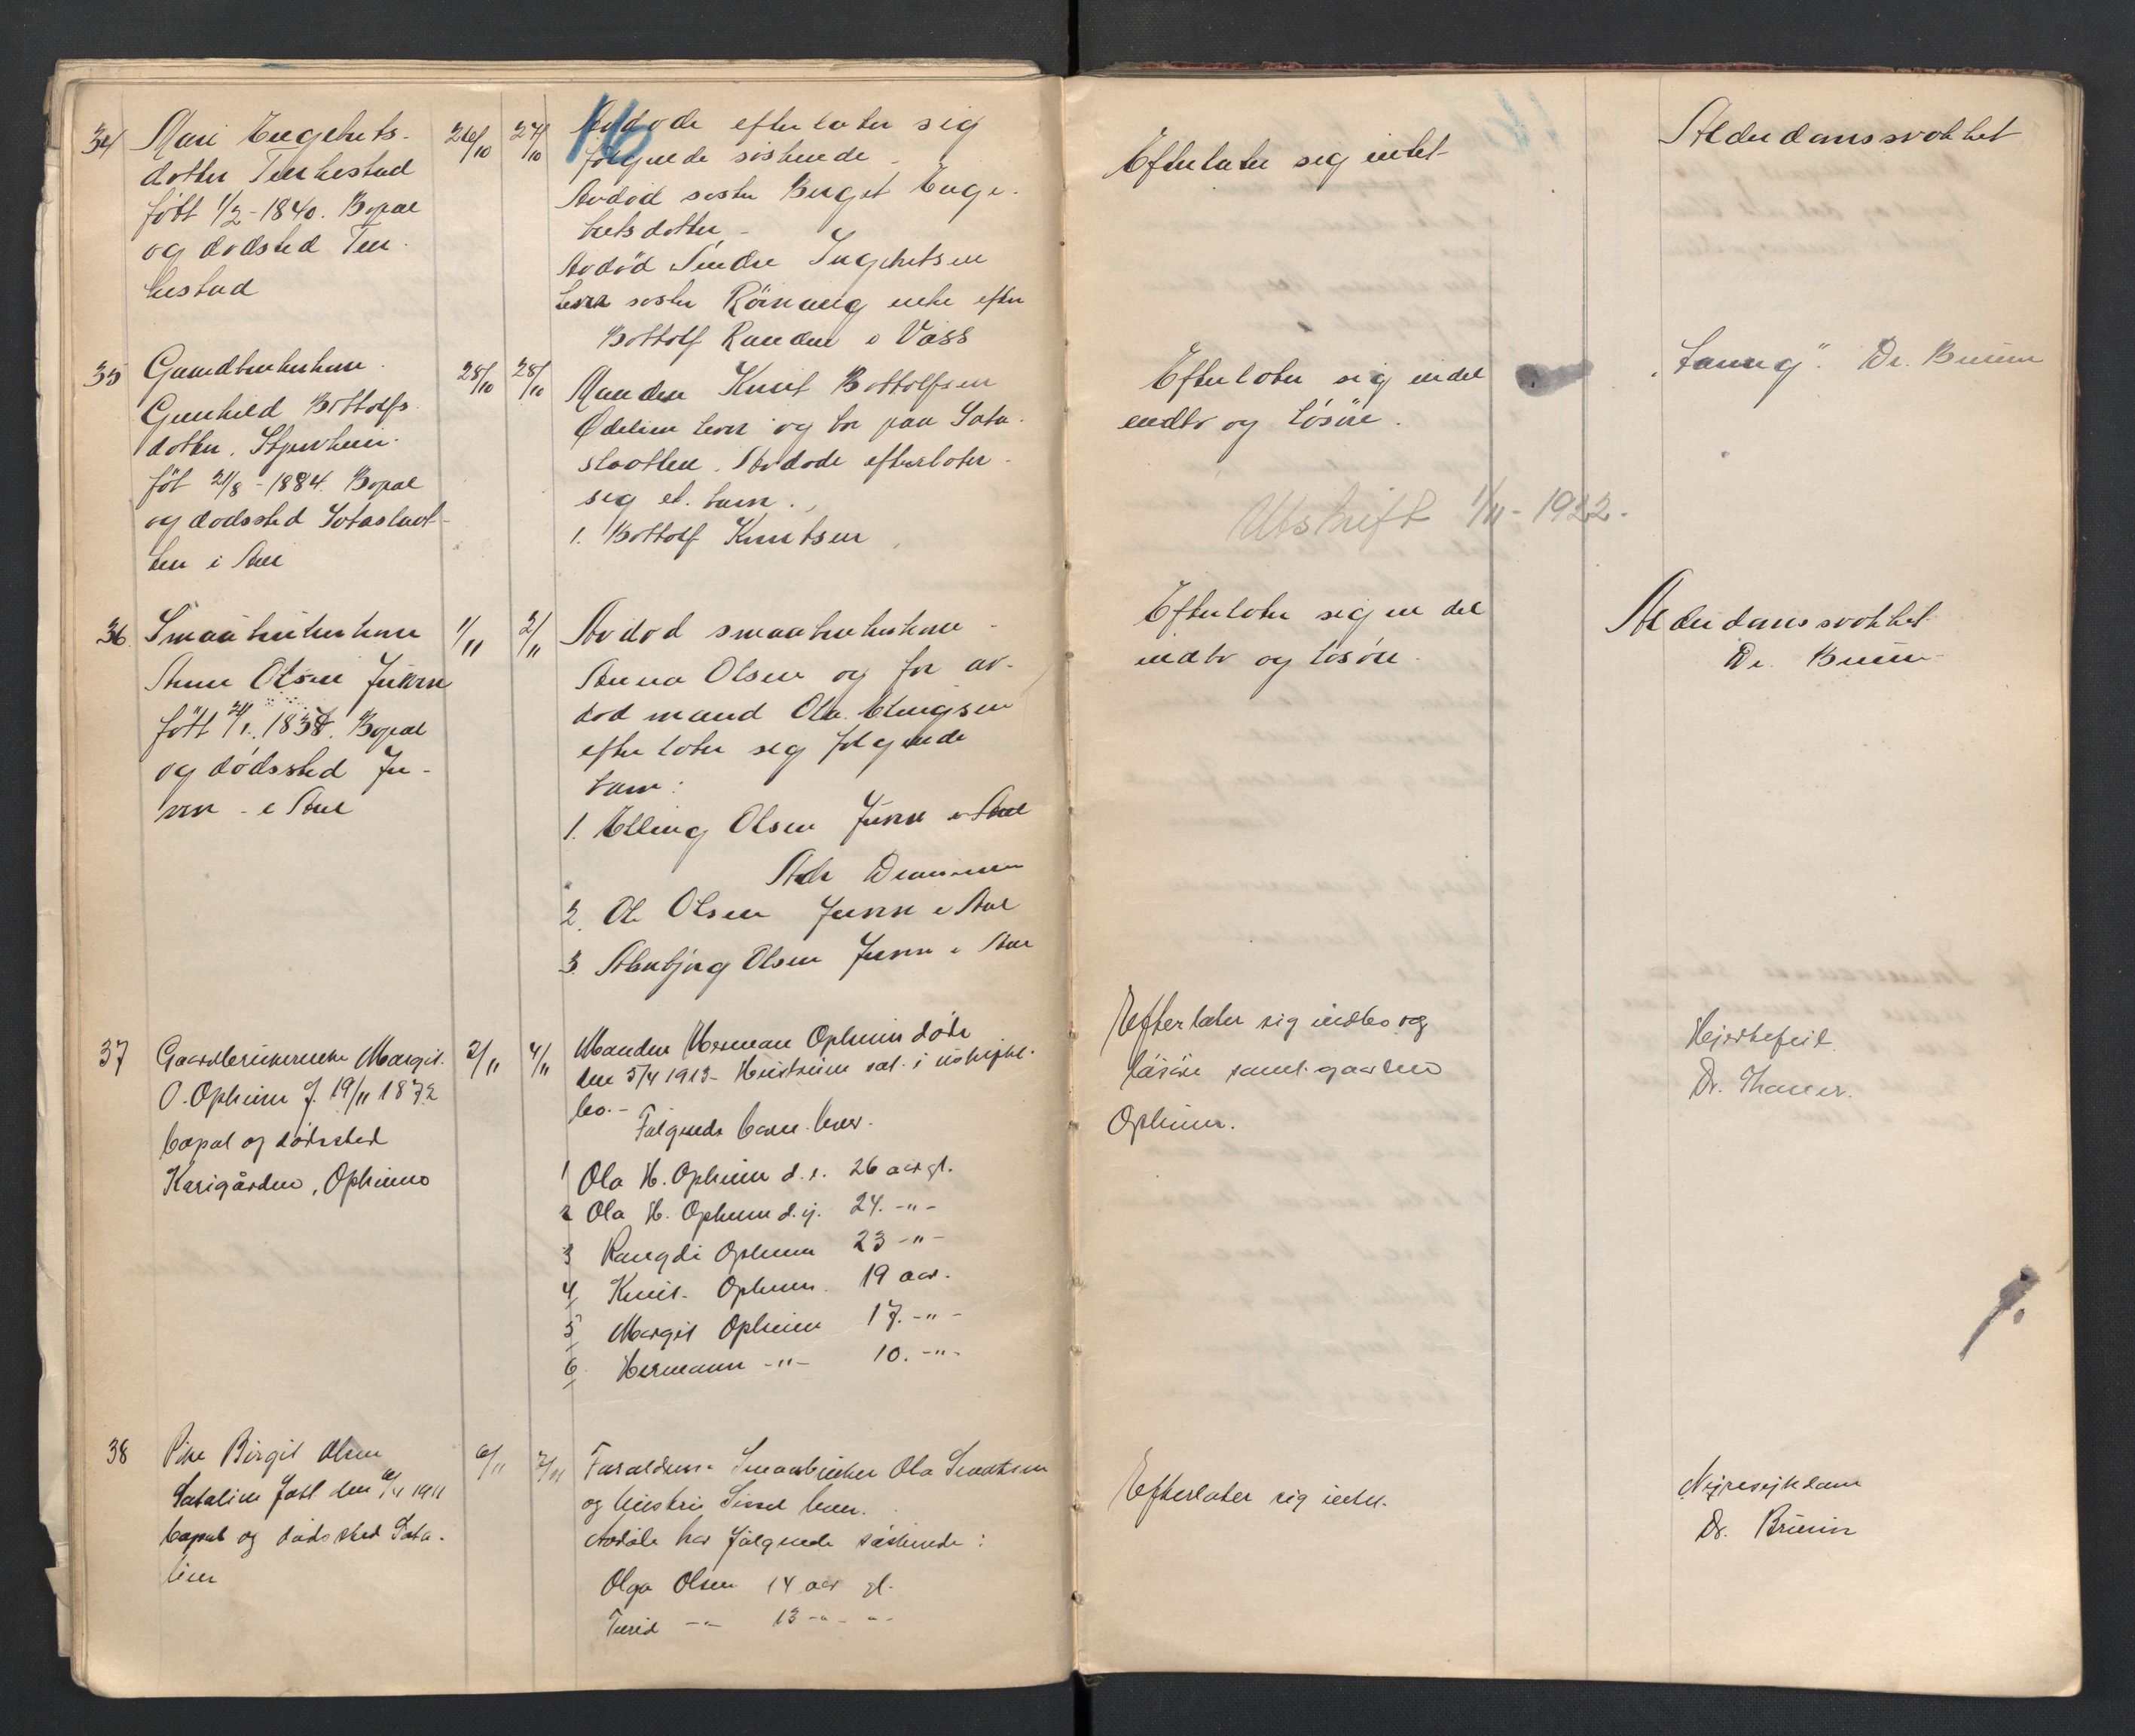 16
34 Mari Engebrets-
dotter Tenhestad
født 1/2-1840. Bopæl
og dødsted Ten
hestad
26/10 27/10
Avdøde efterlater sig
følgende søskende
Avdød søster Berget Enge-
bretsdotter
Avdød Sindre Ingebretsen
søster Rönaug enke efter
Bottolf Randen i Voss
Efterlater sig intet
Alderdomssvakhet
35 Gaardbrukerkone
Gunhild Bottolfs
dotter.
föt 21/8-1884. Bopæl
og dødssted Sataslaat-
ten i Aal
28/10 28/10
Manden Knut Bottolfsen
Ødelien lever og bor paa Sata-
slaatten. Avdøde efterlater
sig et barn.
1. Bottolf Knutsen
Efterlater sig en del
indbo og løsøre.
Utskrift 1/11-1922.
Dr. Bruun
36. Smaabrukerkone
Anne Olsen Juven
født 1838. Bopæl
og dødssted Ju-
ven i Aal
1/11 2/11
Avdød smaabrukerkone
Anna Olsen og før av-
død mand Ola Elingsen
efterlater sig følgende
barn:
1. Elling Olsen Juven i Aal
Adr
2. Ole Olsen Juven i Aal
3. Olsen Juven i Aal
Efterlater sig en del
indbo og løsøre.
Alderdomssvakhet
Dr. Bruun
37 Gaardbrukerenke Margit
O. Opheim f. 19/11 1872
bopæl og dødssted
Karigården, Opheim
2/11 4/11
Manden Herman Opheim døde
den 5/4 1913- Hustruen sat i uskiftet
bo.-
Følgende barn lever.
1 Ola H. Opheim d.e. 26 aar gl.
2 Ola H. Opheim d.y. 24. -"-
3 Rangdi Opheim 23 -"-
4 Knut Opheim 19 aar.
5 Margit Opheim 17. -"-
6. Hermann -"- 10. -"-
Efterlater sig indbo og
løsøre samt gaarden
Opheim.
Hjertefeil.
Dr. Thaner.
38 Pike Birgit Olsen
Satalien født den 1911
bopæl og dødssted Sata-
lien
6/11 7/11
Forældrene Smaabruker Ola
og hustru Sissel lever.
Avdøde har følgende søskende:
Olga Olsen 14 aar gl.
Turid -"- 13 -"- -"-
Efterlater sig intet.
Nyresykdom
Dr. Bruun